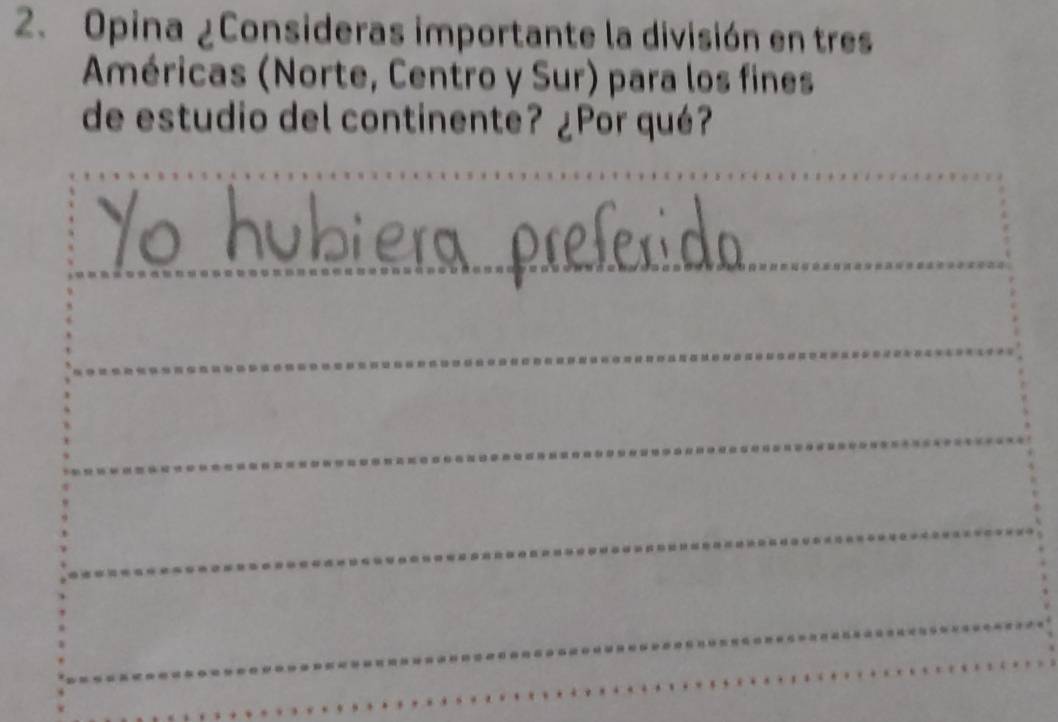 2. Opina ¿Consideras importante la división en tres
Américas (Norte, Centro y Sur) para los fines
de estudio del continente? ¿Por qué?
Yo hubiera preferido